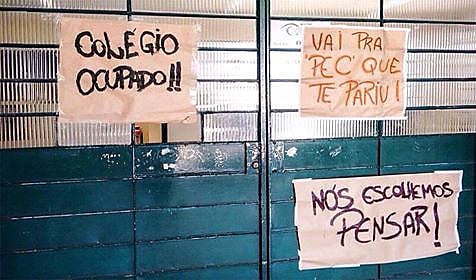 COLÉGIO
OCUPADO!!
VAI PRA
'PEC' QUE
TE PARIU!
NÓS ESCOLHEMOS
PENSAR!